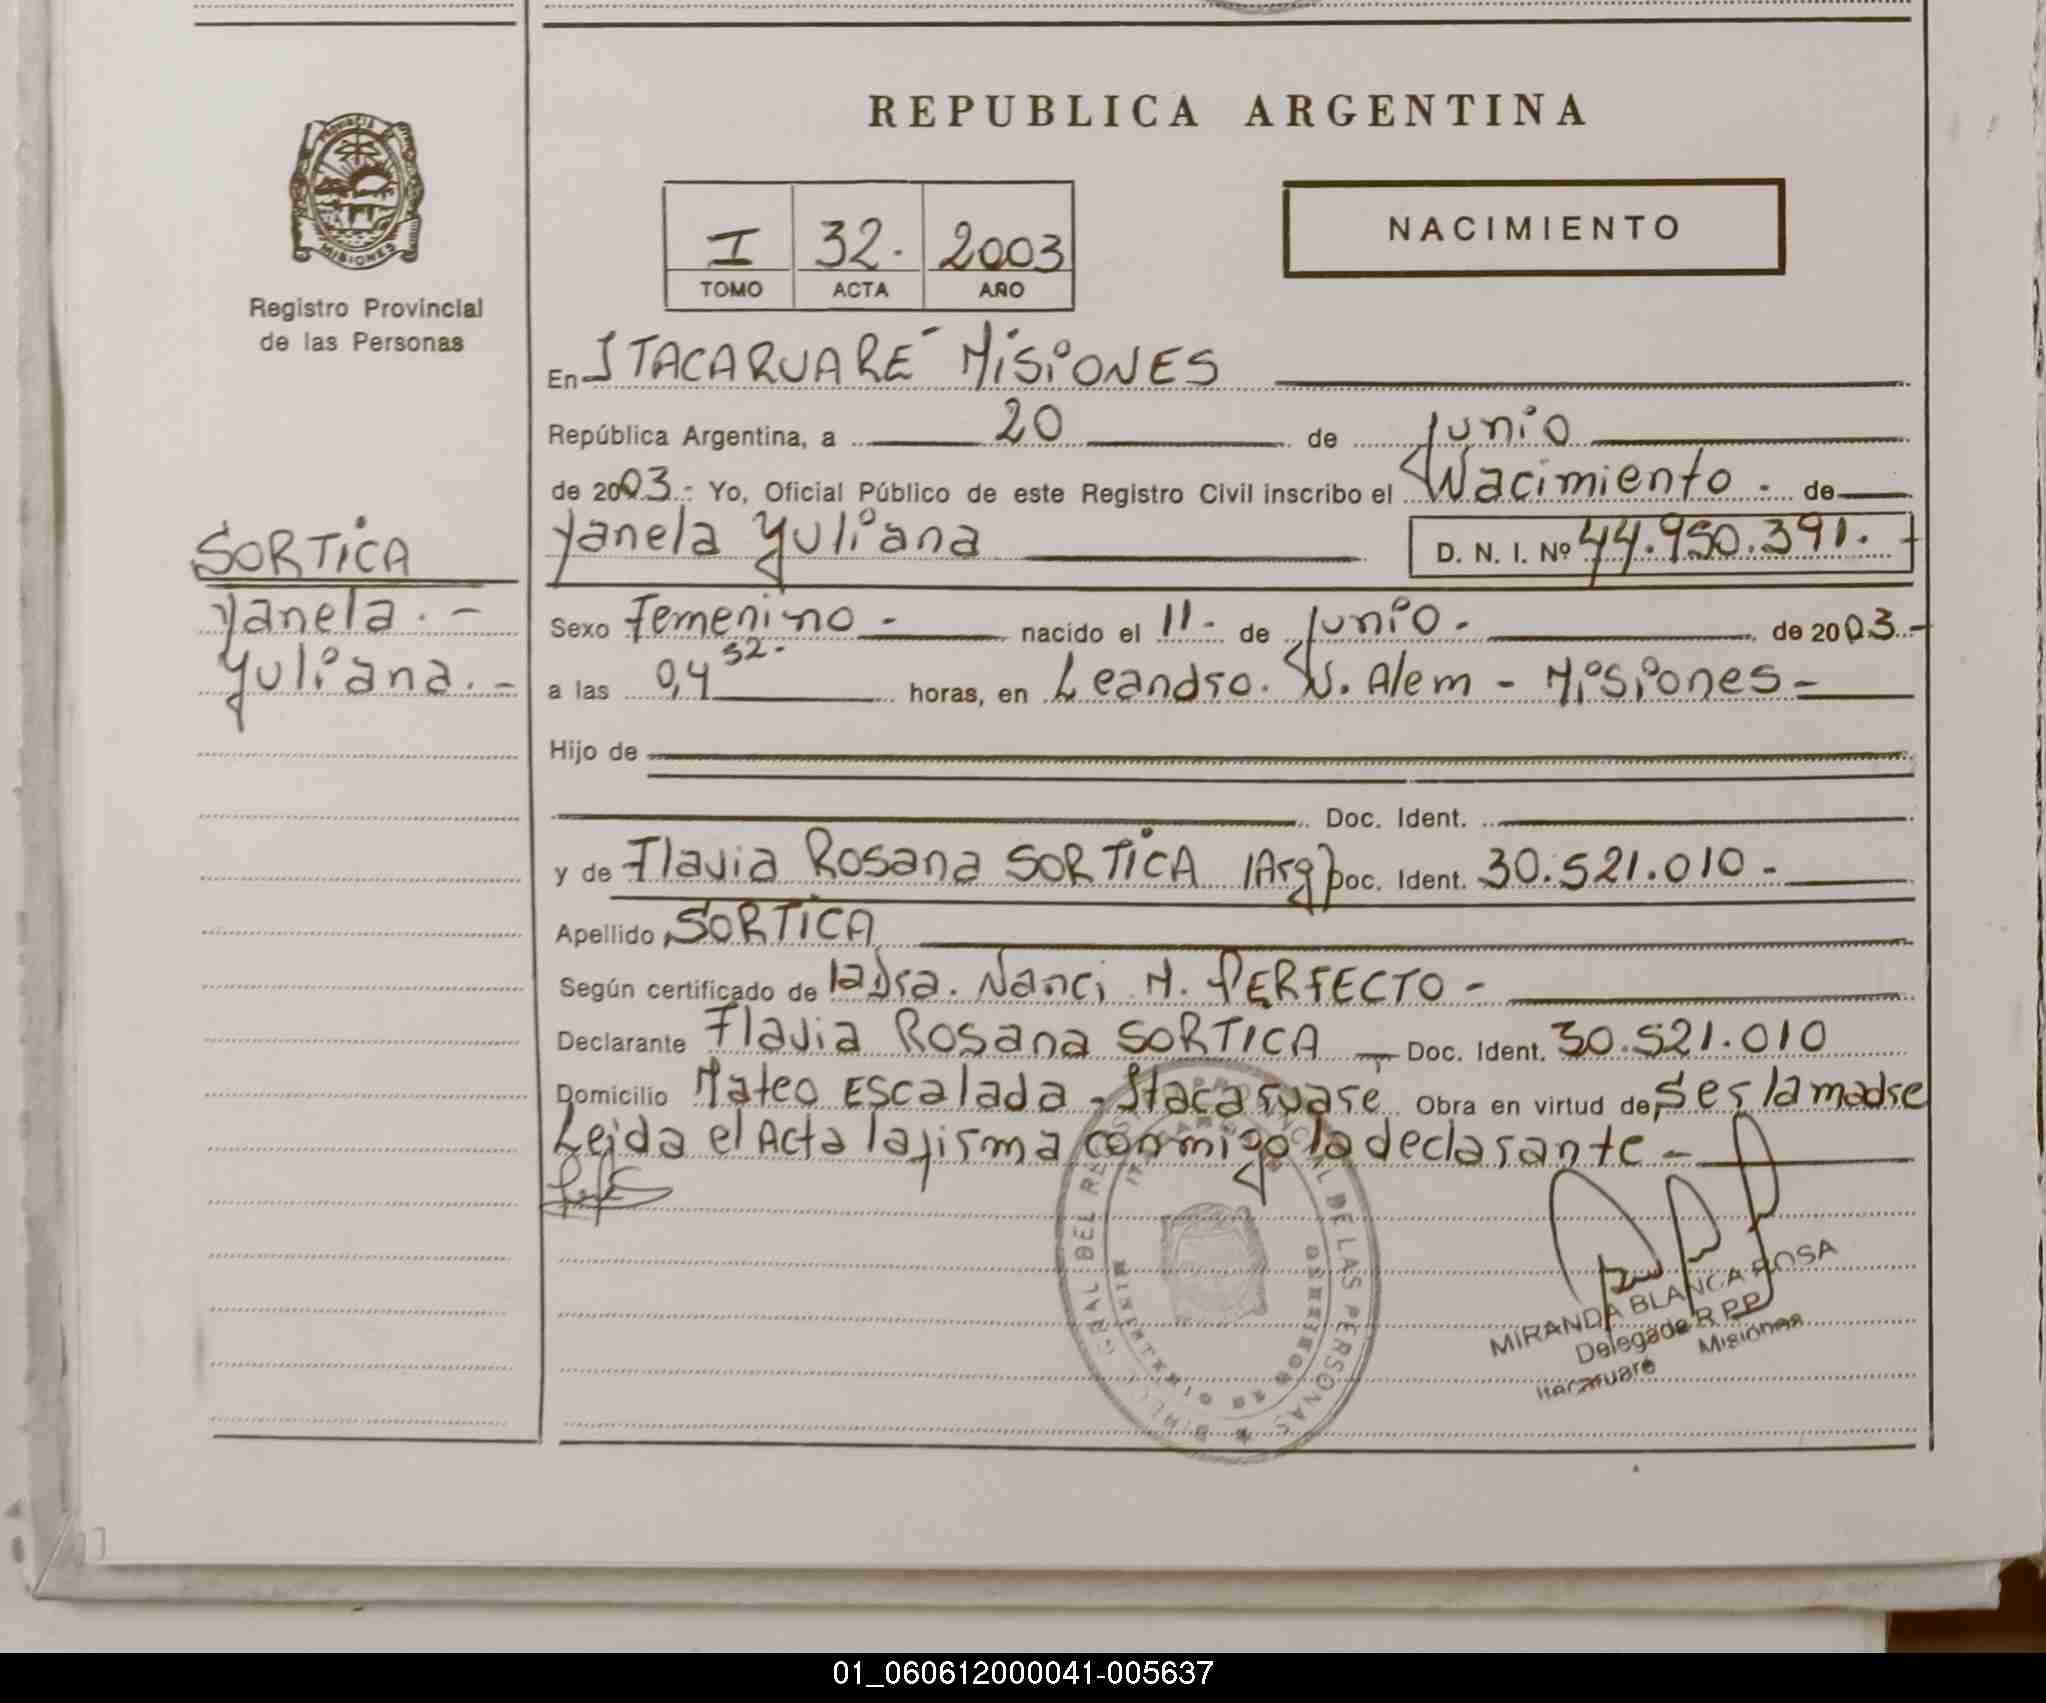 REPUBLICA ARGENTINA
PROVINCIA
MISIONES
Registro Provincial
de las Personas
I 32. 2003
TOMO ACTA AÑO
NACIMIENTO
En ITACARUARÉ MISIONES
República Argentina, a 20 de Junio
de 2003.- Yo, Oficial Público de este Registro Civil inscribo el Nacimiento. de
Yanela Yuliana D. N. I. Nº 44.950.391.-
SORTICA
Yanela.-
Yuliana.-
Sexo Femenino - nacido el 11. de Junio. de 2003.-
a las 0,4 52.- horas, en Leandro. N. Alem - Misiones -
Hijo de
Doc. Ident.
y de Flavia Rosana SORTICA (Arg) Doc. Ident. 30.521.010 -
Apellido SORTICA
Según certificado de la Dra. Nanci M. PERFECTO -
Declarante Flavia Rosana SORTICA - Doc. Ident. 30.521.010
Domicilio Mateo Escalada - Itacaruare Obra en virtud de ser la madre
Leida el Acta la firma conmigo la declarante -
GRAL DEL DE LAS PERSONAS
MINISTERIO DE GOBIERNO
MIRANDA BLANCA ROSA
Delegada R P P
Itacaruaré Misiones
01_060612000041-005637